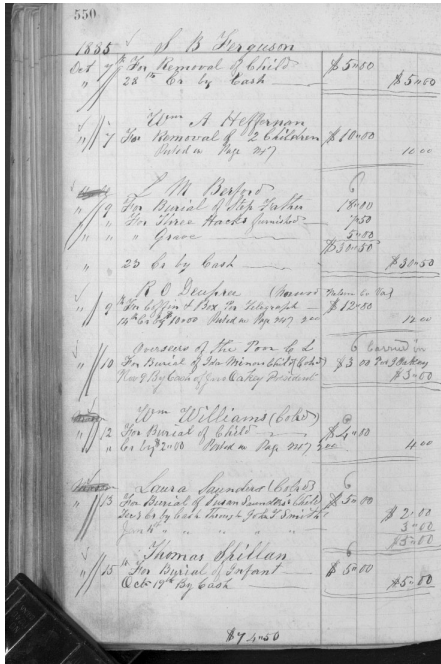 550
1885 S B Ferguson
Oct 7 For Removal of Child $5"00
" 28th Cr by Cash $5"00
Wm A Heffernan
" 7 For Removal of 2 Children $10"00
Posted on Page 10 00
L M Berford
" 9 For Burial of Step Father 18"00
" " For Three Hacks furnished 7"50
" " " Grave 5"00
$30"50
" 23 Cr by Cash $30"50
R O Deupree
" 9th For Coffin & Box Per Telegraph $12"00
14th Cr By $10"00 Posted on Page 2 00 12 00
Overseers of the Poor C L Carried on
" 10 For Burial of Minor Child of (Cold) $3 00
Nov 9 By Cash of Jno Oakey President $3"00
Wm Williams (Cold)
" 12 For Burial of Child $4"00
" Cr by $2"00 Posted on Page 2 00 4 00
Laura Saunders (Cold)
" 13 For Burial of Susan Saunders Child $5"00
Cr by Cash Through John T Smith $2"00
" " " " 3"00
$5"00
Thomas Spillan
" 15th For Burial of Infant $5"00
Oct 19th By Cash $5"00
$74"50